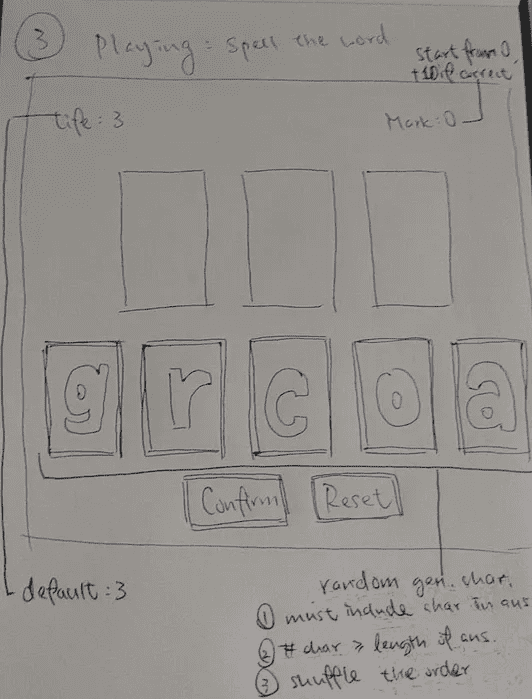 3 Playing: Spell the word
start from 0,
+10 if correct
Life: 3 Mark: 0
g r c o a
Confirm Reset
default: 3
random gen. char.
① must include char in ans
② # char ≥ length of ans.
③ shuffle the order